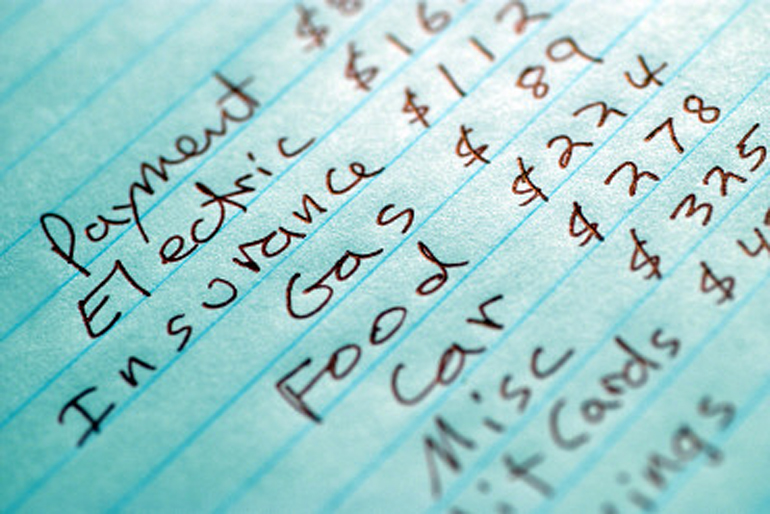 Payment $8
Electric $16
Insurance $112
Gas $ 89
Food $224
Car $278
Misc $325
it Cards $4
ings